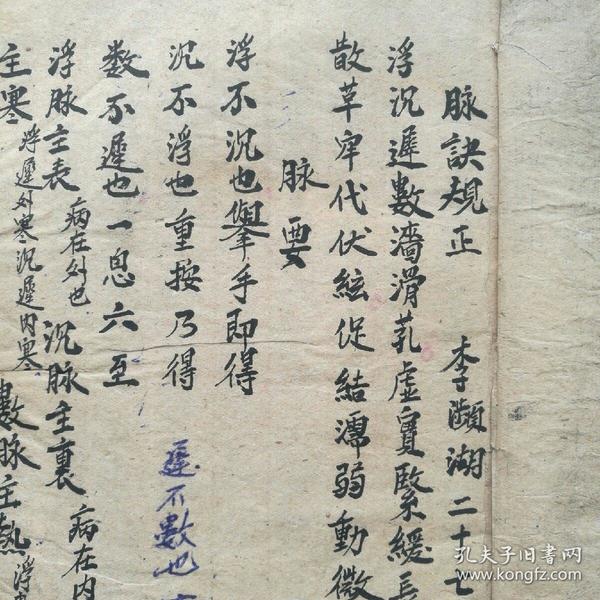 脉訣規正 李瀕湖二十七
浮沉遲數濇滑芤虛實緊緩長
散革牢代伏絃促結濡弱動微
脉要
浮不沉也舉手即得
沉不浮也重按乃得 遲不數也
数不遲也一息六至
浮脉主表 病在外也 沉脉主裏 病在内
主寒 浮遲外寒沉遲内寒 數脉主熱 浮數
孔夫子旧书网
www.kongfz.com